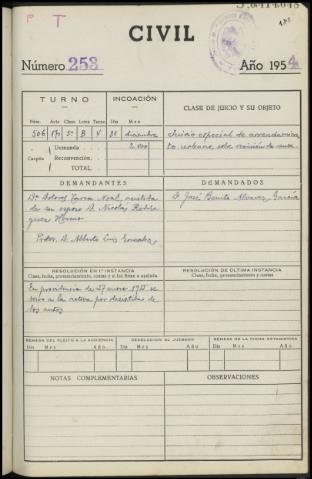 P T
CIVIL
Número 253 Año 1954
TURNO INCOACIÓN CLASE DE JUICIO Y SU OBJETO
Núm. Año Clase Letra Turno Día Mes
506 B diciembre Juicio especial de arrendamien
Demanda 2.000 to urbano, sobre de renta
Cuantía Reconvención.
TOTAL
DEMANDANTES DEMANDADOS
Dª Dolores Noal, asistida D. José Benito Alvarez García
de su esposo D. Nicolás Rodrí
guez
Procr. D. Alberto
RESOLUCIÓN EN 1ª INSTANCIA RESOLUCIÓN DE ÚLTIMA INSTANCIA
Clase, fecha, pronunciamiento, costas y si fué firme o apelada. Clase, fecha, pronunciamiento y costas
En providencia de 27 enero 1955 se
por desistida de
los autos
REMESA DEL PLEITO A LA AUDIENCIA DEVOLUCIÓN AL JUZGADO REMESA DE LA FICHA ESTADISTICA
Día Mes Año Día Mes Año Día Mes Año
NOTAS COMPLEMENTARIAS OBSERVACIONES